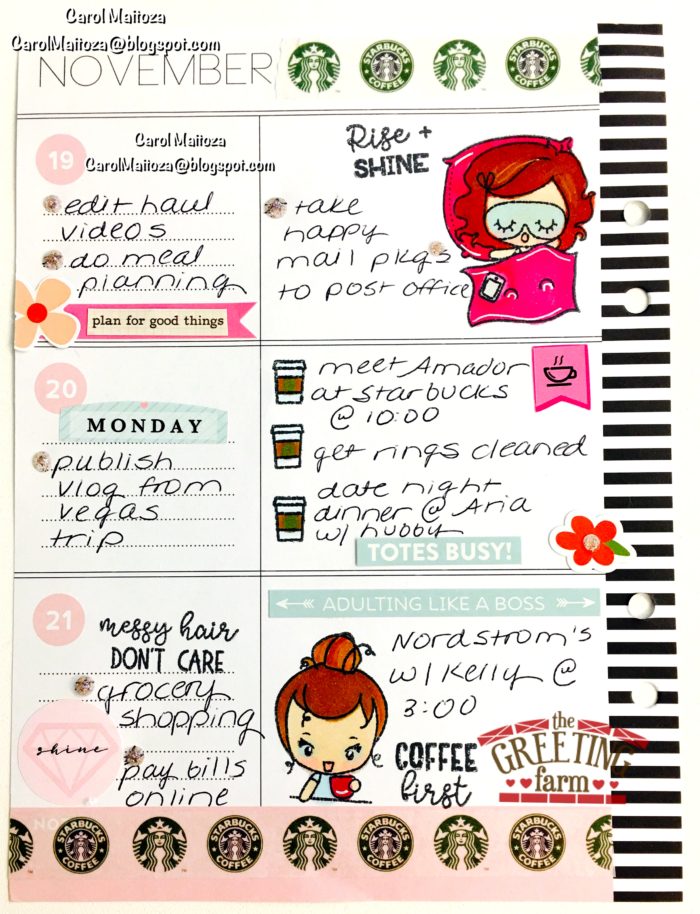 Carol Maitoza
CarolMaitoza@blogspot.com
NOVEMBER
STARBUCKS COFFEE
STARBUCKS COFFEE
Carol Maitoza
CarolMaitoza@blogspot.com
19
edit haul
videos
do meal
planning
plan for good things
Rise +
SHINE
take
happy
mail pkgs
to post office
20
MONDAY
publish
vlog from
vegas
trip
meet Amador
at starbucks
@ 10:00
get rings cleaned
date night
dinner @ Aria
w/ hubby
TOTES BUSY!
21
messy hair
DON'T CARE
grocery
shopping
shine
pay bills
online
ADULTING LIKE A BOSS
Nordstrom's
w/ Kelly @
3:00
COFFEE
first
the
GREETING
farm
STARBUCKS COFFEE
STARBUCKS COFFEE
STARBUCKS COFFEE
STARBUCKS COFFEE